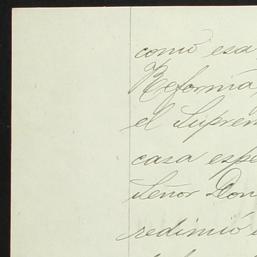 como esa
Reforma,
el Suprem
casa espe
Señor Don
redimió